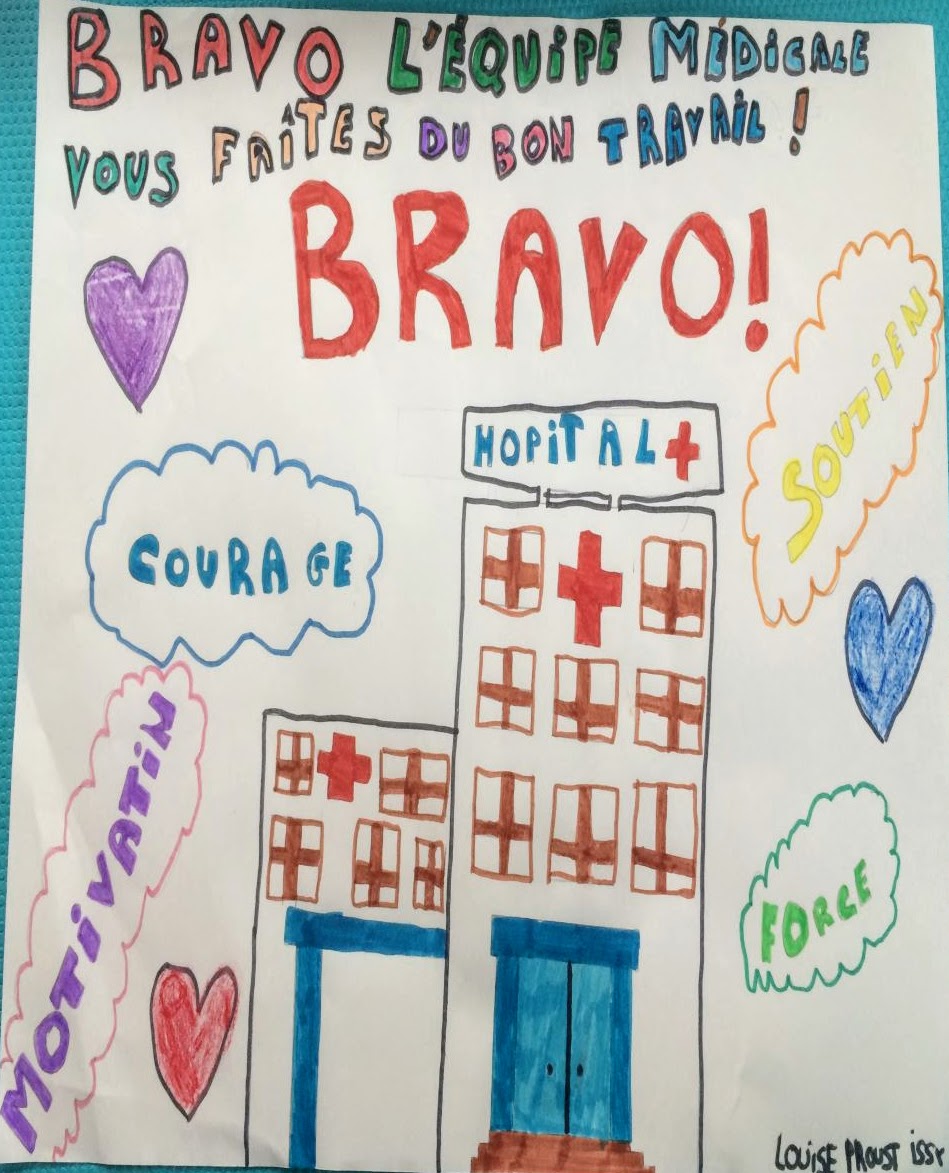 BRAVO L'ÉQUIPE MÉDICALE
VOUS FAÎTES DU BON TRAVAIL !
BRAVO!
SOUTIEN
HOPITAL
COURAGE
MOTIVATIN
FORCE
LOUISE PROUST ISSY